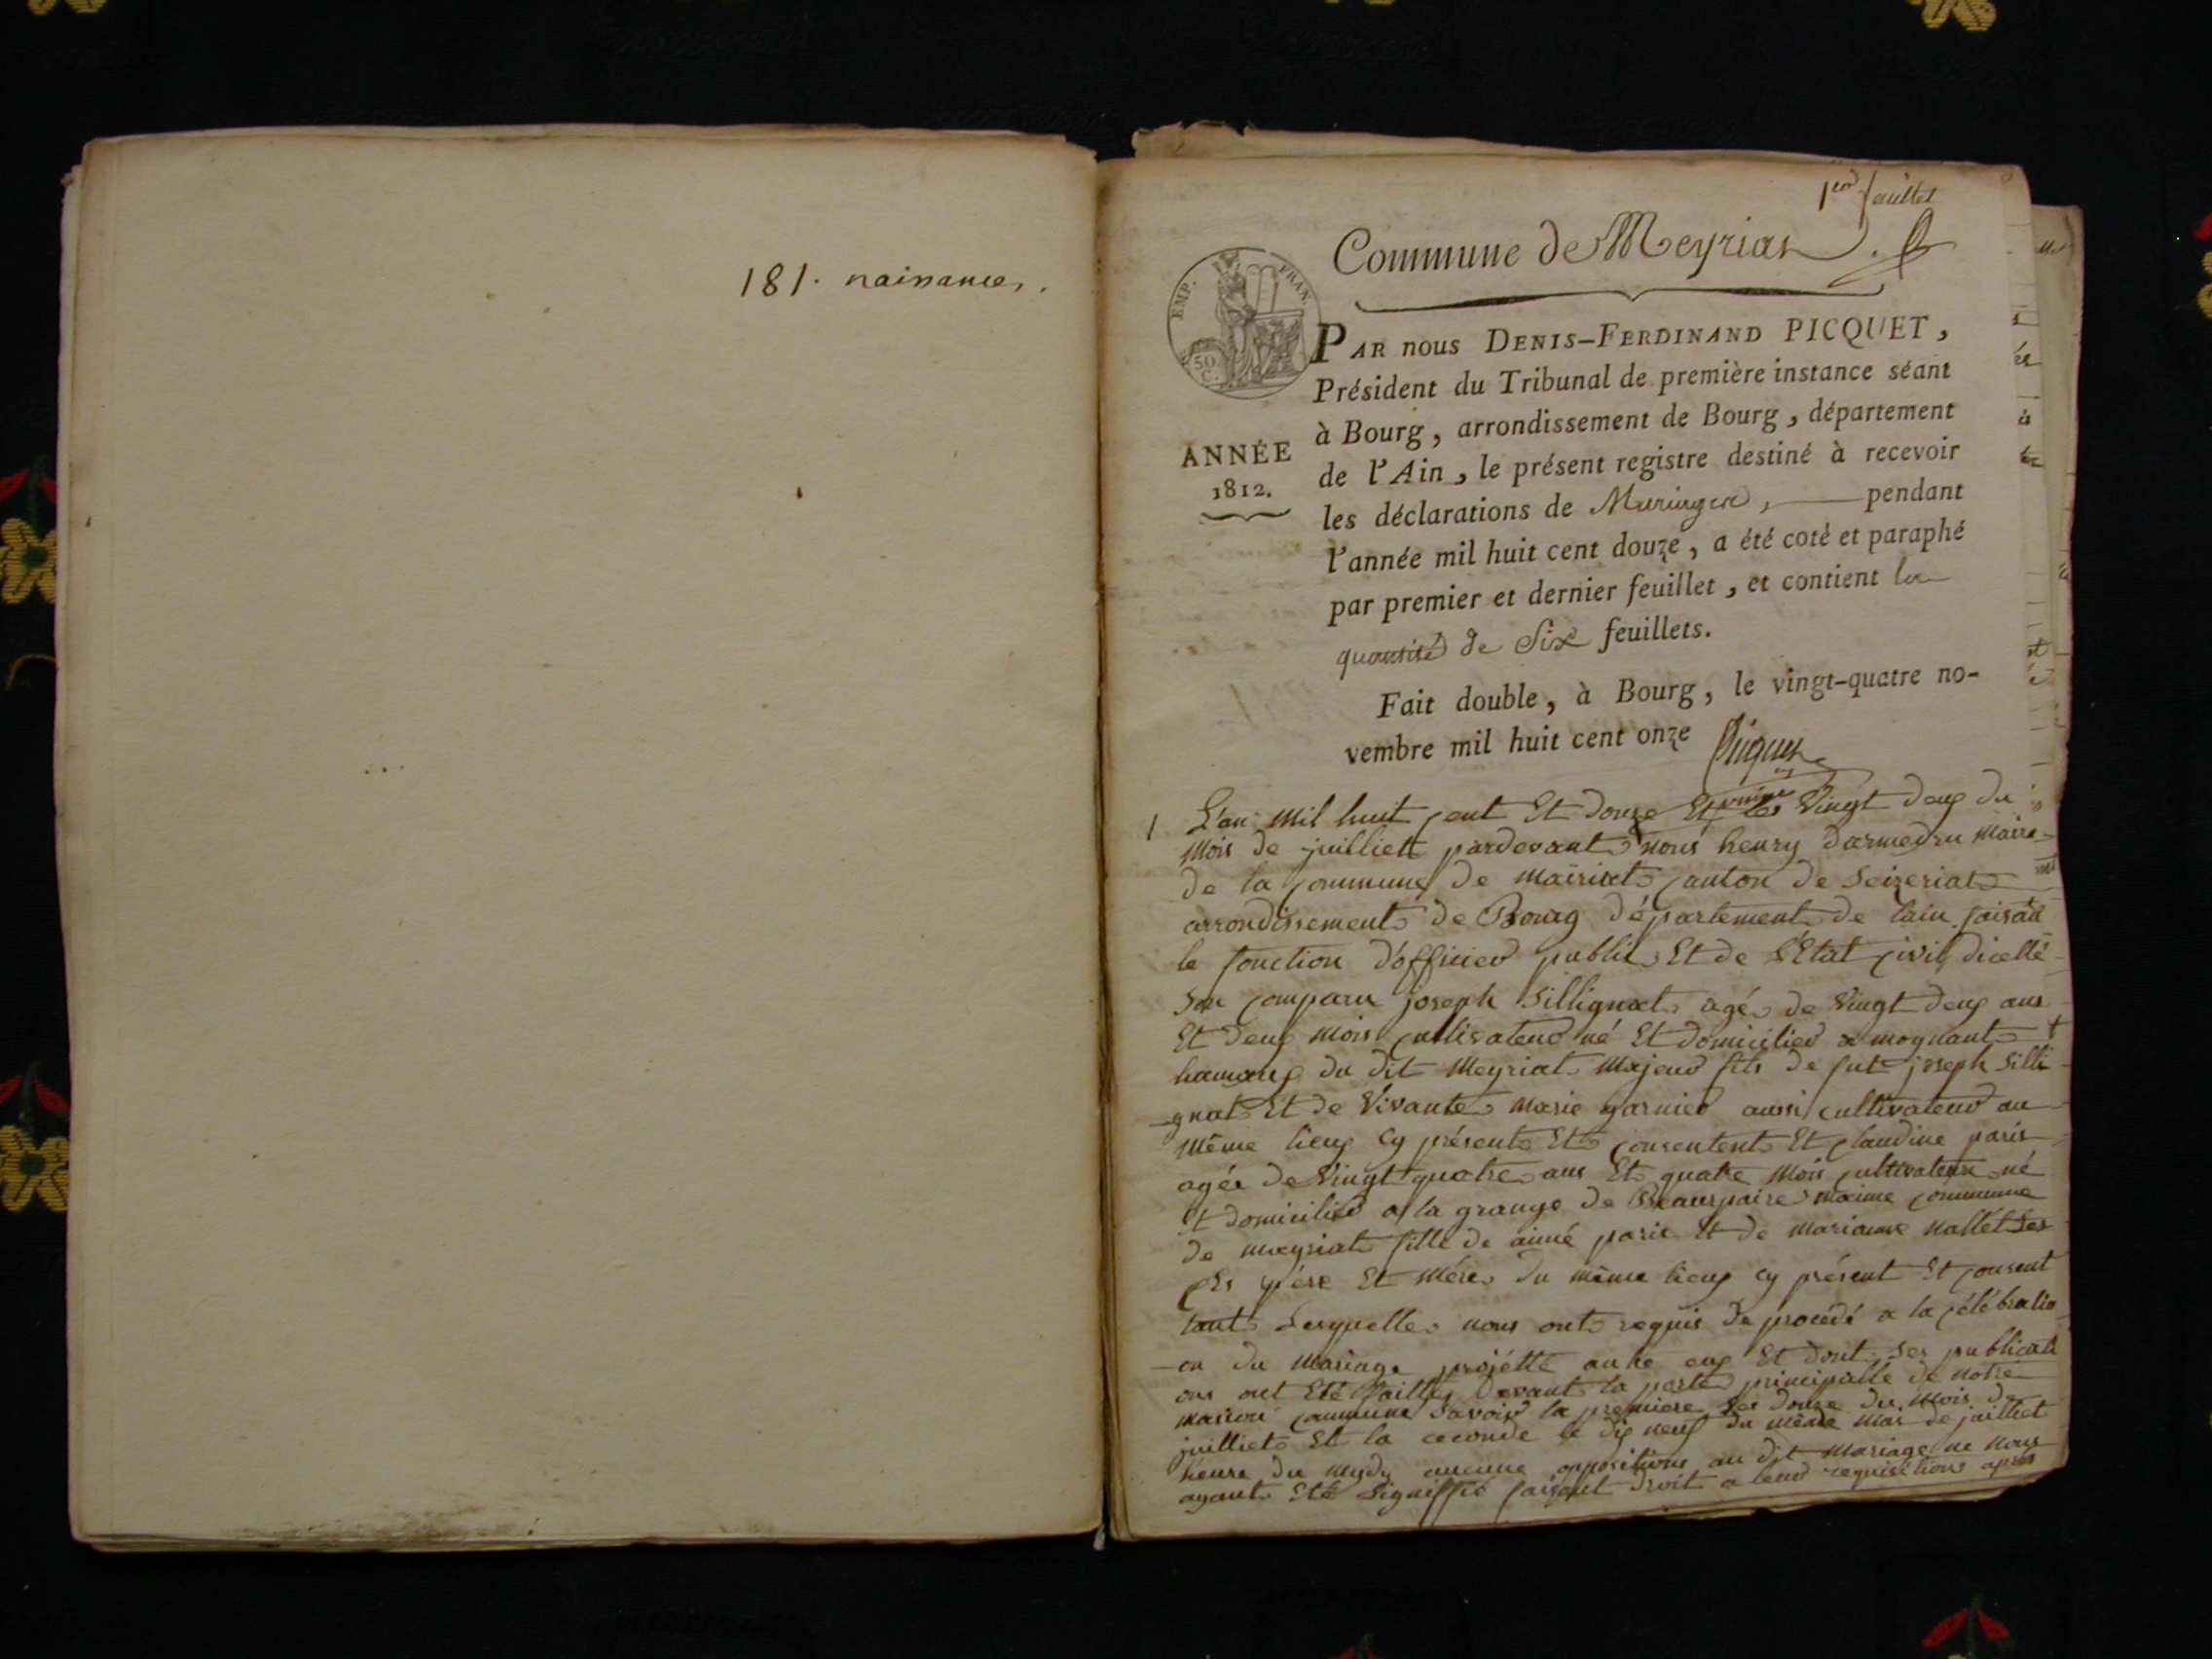 181. naissances.
1er feuillet
Commune de Meyriat
EMP. FRAN.
50 C.
ANNÉE
1812.
PAR nous DENIS-FERDINAND PICQUET,
Président du Tribunal de première instance séant
à Bourg, arrondissement de Bourg, département
de l'Ain, le présent registre destiné à recevoir
les déclarations de Mariages, pendant
l'année mil huit cent douze, a été coté et paraphé
par premier et dernier feuillet, et contient la
quantité de Six feuillets.
Fait double, à Bourg, le vingt-quatre no-
vembre mil huit cent onze
Picquet
1 L'an mil huit cent Et douze Et les Vingt deux du
mois de juilliett pardevant nous henry darmedru maire
de la commune de mairiat canton de Seizeriat
arrondissement de Bourg département de lain faisan
le fonction d'officier public Et de L'Etat civil dicelle
Son comparu joseph Sillignat agé de Vingt deux ans
Et deux mois cultivateur né Et domicilier a mognant
hamaux du dit Meyriat Majeur fils de fut joseph Silli
gnat Et de Vivante marie garnier aussi cultivateur au
même lieux cy présent Et consentent Et claudine paris
agée de Vingt quatre ans Et quatre mois cultivateur né
Et domicilier a la grange de Beaurpaire maime commune
de meyriat fille de aimé paris Et de marianne nallet Ses
père Et mére du même lieux cy présent Et consent
tant Lesquelles nous ont requis de procédé a la célébratio
on du mariage projétté antre eux Et dont Ses publicati
ons ont Eté faittes Devant la porte principalle de notre
maison commune Savoir la premiere les douze du mois de
juilliet Et la ceconde le dix neuf du même mois de juilliet
heure du mydy aucunne oppositions au dit mariage ne nous
ayant Eté Signiffié faisant droit a leur requisitions apres